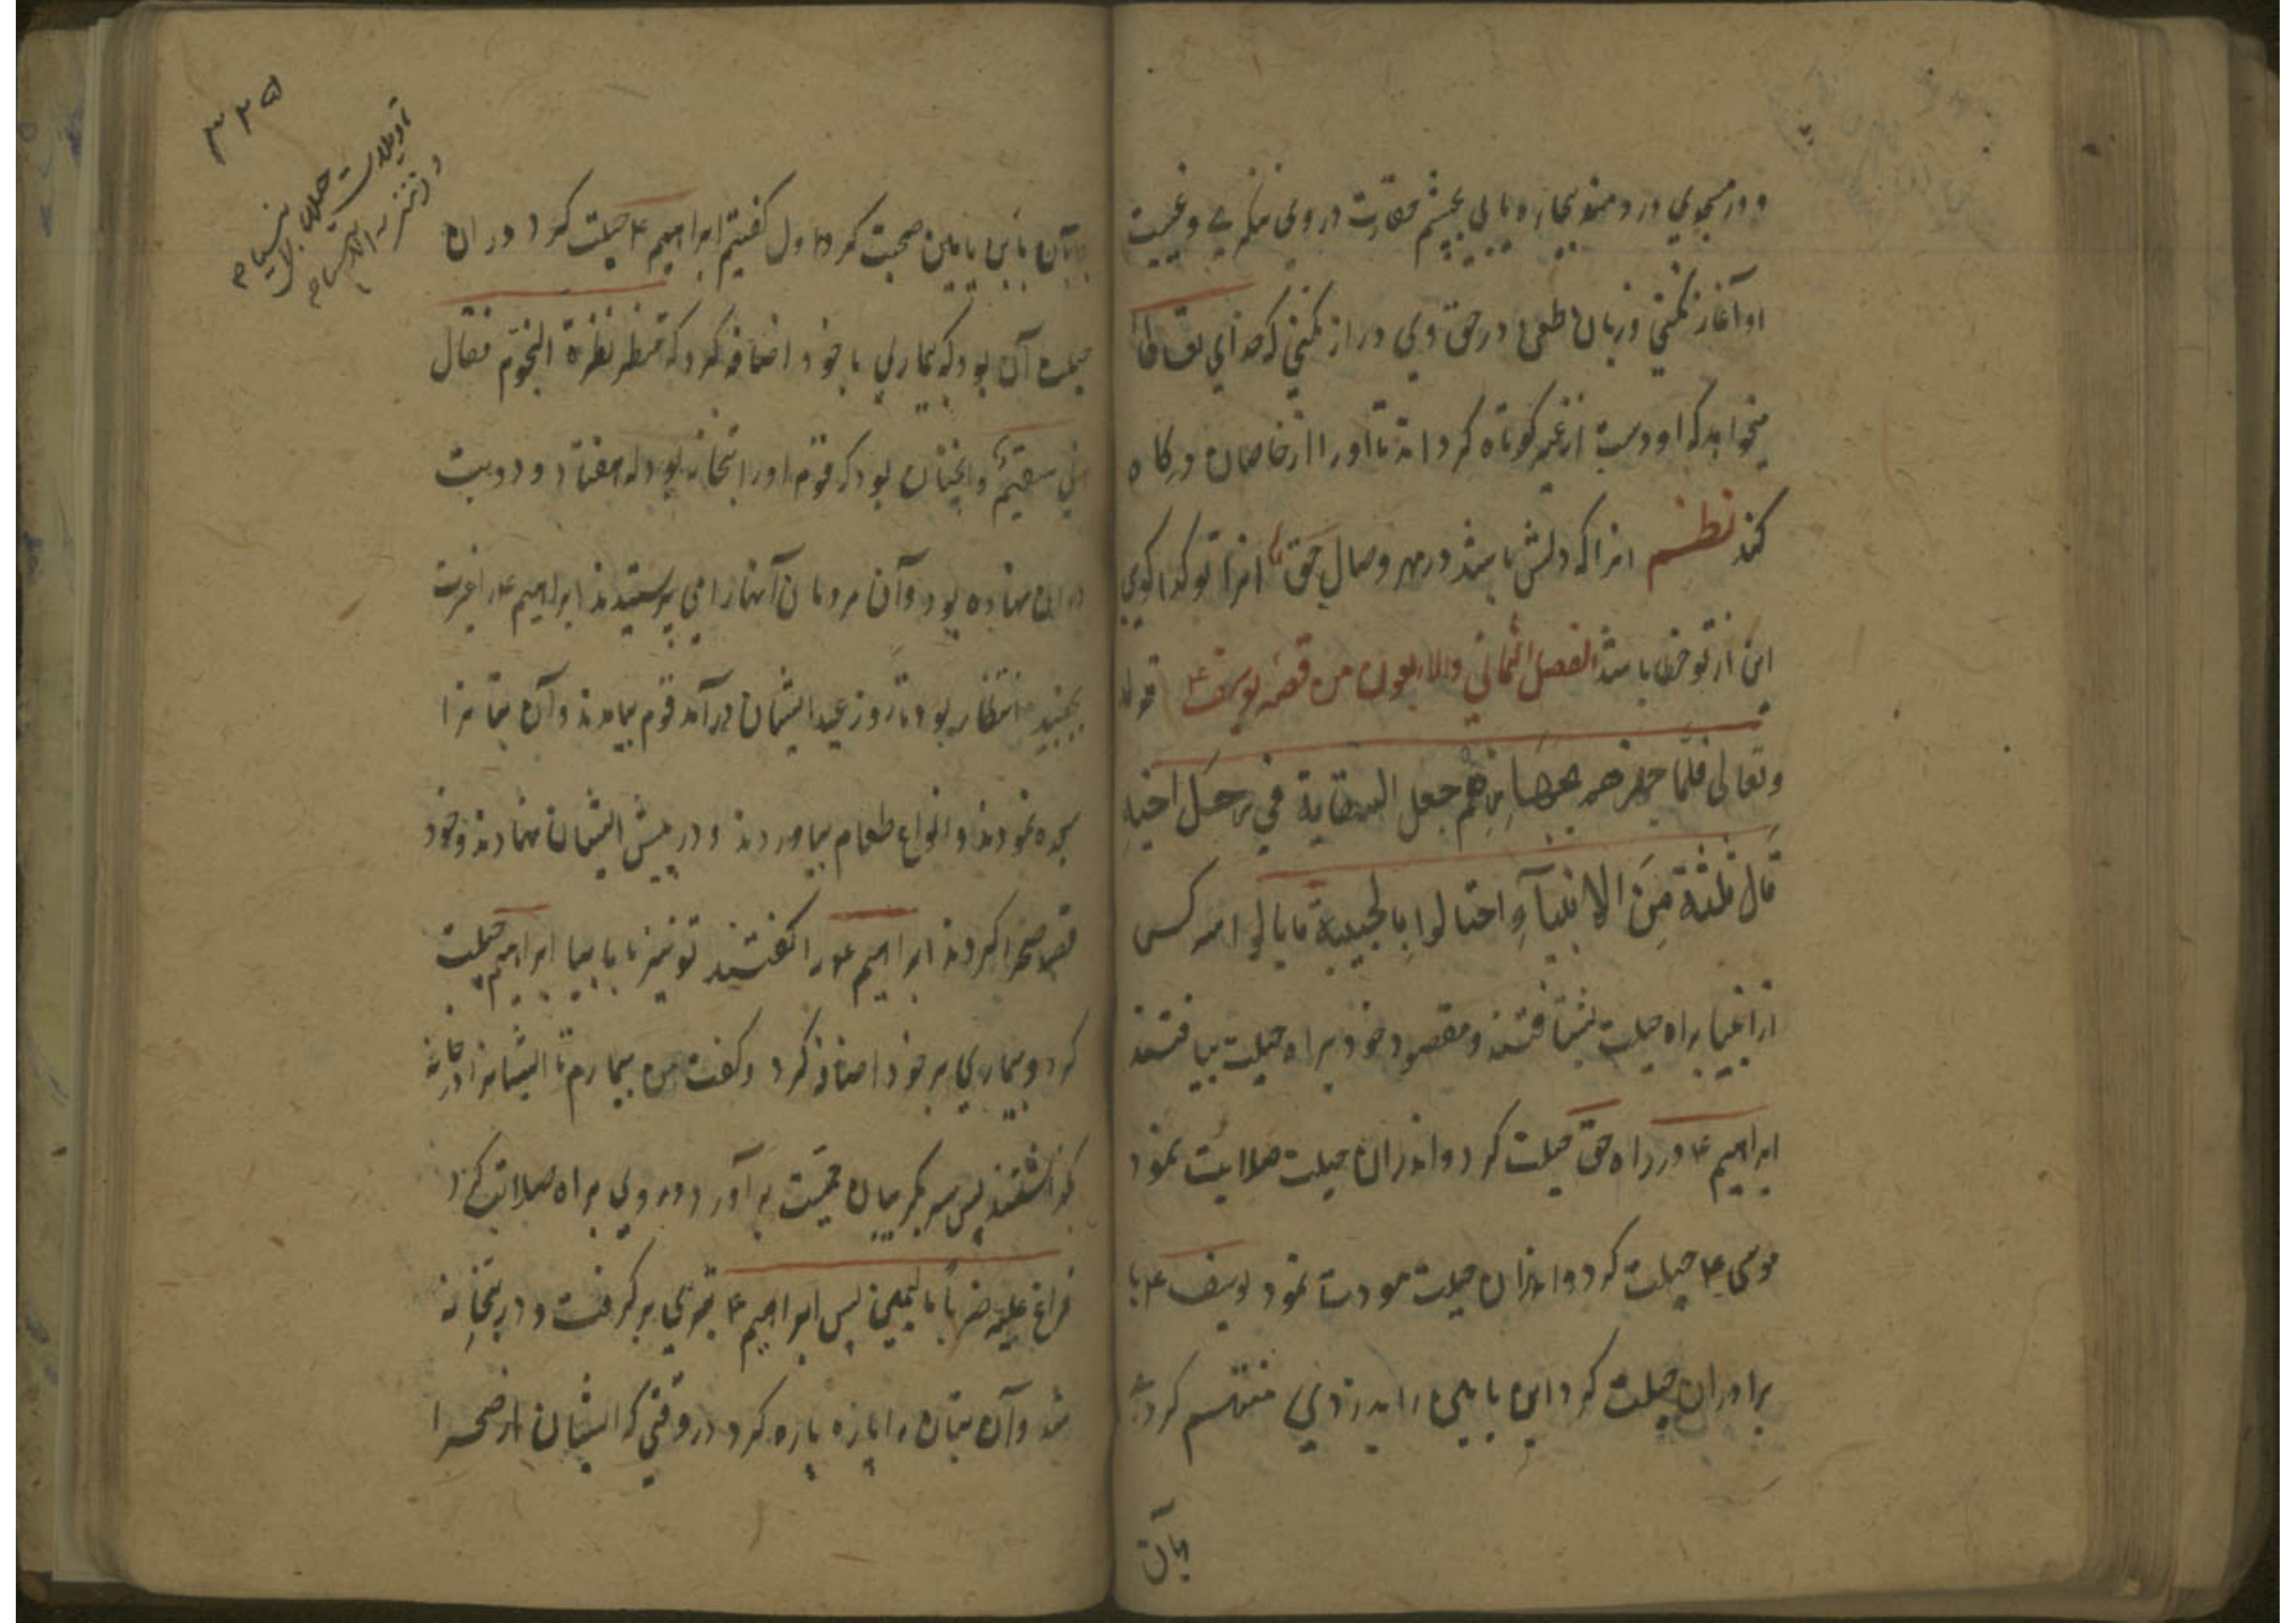 و در منجوی دردمند بیچاره یابی بچشم حقارت در وی ننگری و غیبت
او آغاز نکنی و زبان طعن در حق وی دراز نکنی که خدای تعالی
میخواهد که او دست از غیر کوتاه کرداند تا او را از خاصان درکاه
کند نظم انرا که دلش باشد در مهر وصال حق انرا تو کدا کویی
این از تو خطا باشد الفصل الثانی والاربعون من قصه یوسف ع قوله
وتعالی فلمّا جهزهم بجهازهم جعل السقایة فی رحل اخیه
قال ثلثة مِنَ الانبیآءِ احتالوا بالحیلة یابالی امه کس
از انبیا براه حیلت بشتافتند و مقصود خود براه حیلت بیافتند
ابراهیم ع در راه حق حیلت کرد و اندران حیلت صلابت نمود
موسی ع حیلت کرد و اندران حیلت مودت نمود یوسف ع با
برادران حیلت کرد ابن یامین را بدزدی متهم کرد
بآن
۳۲۵
تاویلات حیل انبیا
بآن با بن یامین صحبت کرد اول کفتیم ابراهیم ع حیلت کرد و در ان
حیلت آن بود که بیماری با خود اضافه کرد که فنظر نظرة النجوم فقال
انی سقیم و انچنان بود که قوم اورا بتخانه بود که هفتاد و دو بت
در ان نهاده بود و آن مردمان آنها را می پرستیدند ابراهیم ع را غیرت
بجنبید انتظار بود تا روز عید ایشان در آمد قوم بیامدند و آن بتانرا
سجده نمودند و انواع طعام بیاوردند و در پیش ایشان نهادند و خود
قصد صحرا کردند ابراهیم ع را کفتند تو نیز با ما بیا ابراهیم حیلت
کرد و بیماری بر خود اضافه کرد و کفت من بیمارم تا ایشانرا در خانه
بگذاشتند پس سر بکریبان حمیت برآورد و روی براه صلابت کرد
فراغ علیهم ضرباً بالیمین پس ابراهیم ع تبری بر کرفت و در بتخانه
شد و آن بتان را پاره پاره کرد در وقتی که ایشان از صحرا